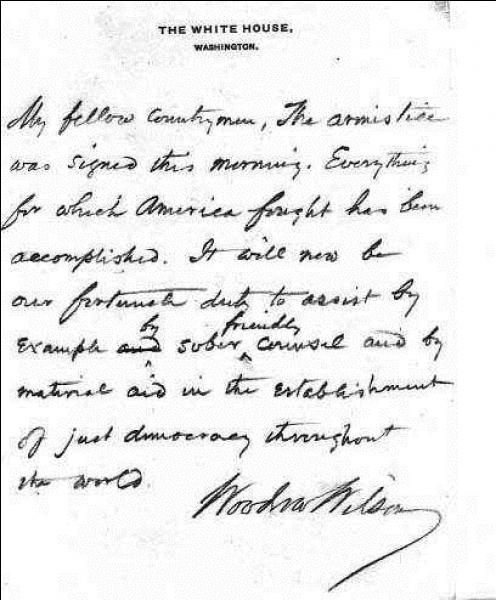 THE WHITE HOUSE,
WASHINGTON.
My fellow countrymen, The armistice
was signed this morning. Everything
for which America fought has been
accomplished. It will now be
our fortunate duty to assist by
by friendly
example and sober counsel and by
material aid in the establishment
of just democracy throughout
the world.
Woodrow Wilson